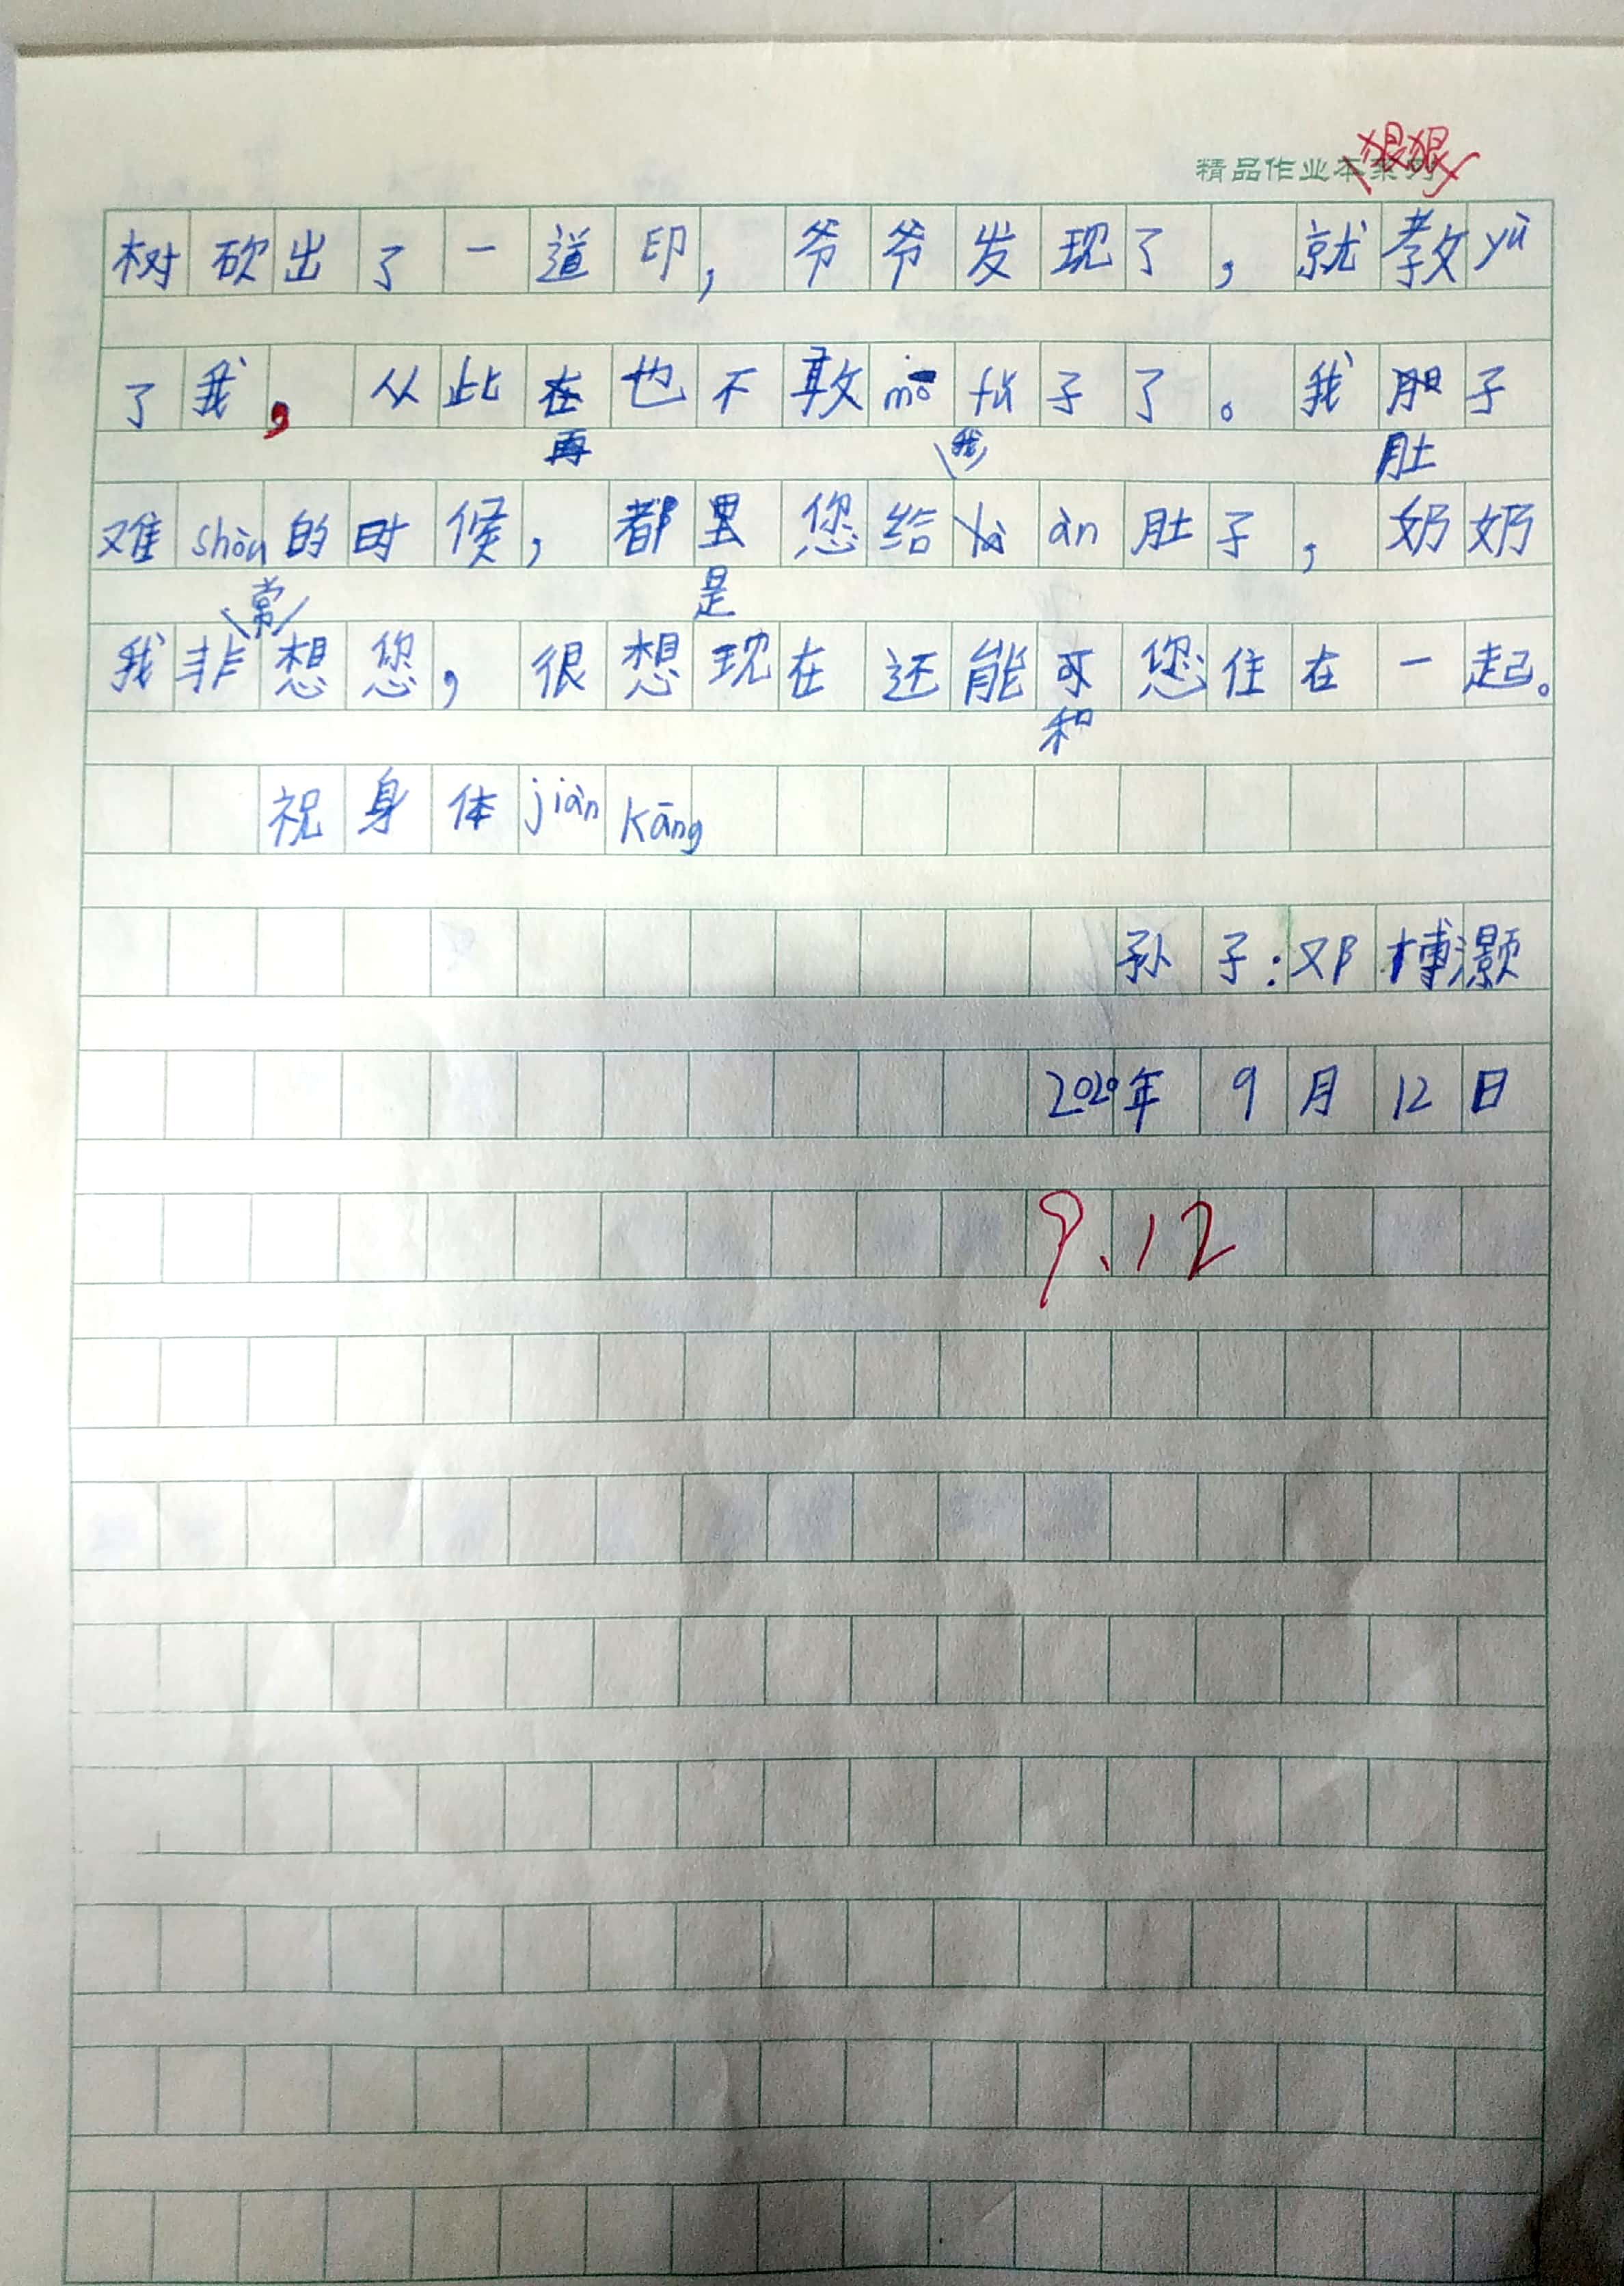 狠狠
精品作业本系列
树砍出了一道印，爷爷发现了，就教yù
了我，从此在也不敢mō fǔ子了。我胆子
再 我 肚
难shòu的时候，都里您给 àn肚子，奶奶
常 是
我非想您，很想现在还能可您住在一起。
和
祝身体jiàn kāng
孙子：邓博灏
2020年9月12日
9.12